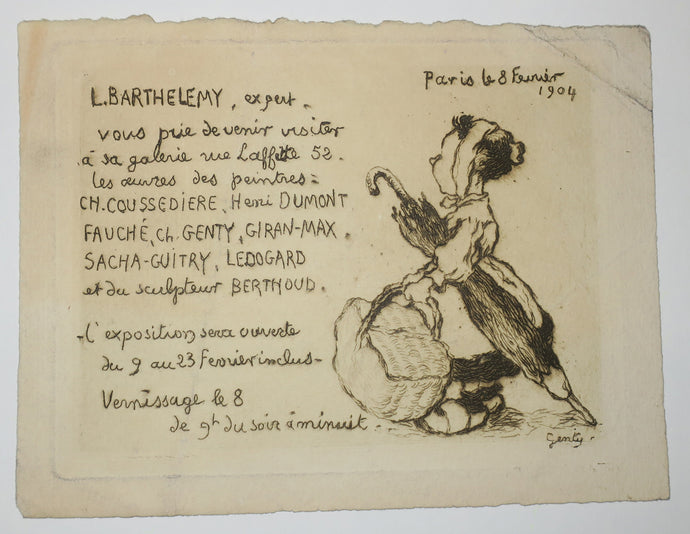 Paris le 8 Fevrier
1904
L. BARTHELEMY, expert.
vous prie de venir visiter
à sa galerie rue Laffitte 52.
les œuvres des peintres:
CH. COUSSEDIERE, Henri DUMONT
FAUCHÉ, Ch. GENTY, GIRAN-MAX.
SACHA-GUITRY, LEDOGARD
et du sculpteur BERTHOUD.
L'exposition sera ouverte
du 9 au 23 Fevrier inclus-
Vernissage le 8
de 9h du soir à minuit.
Genty.